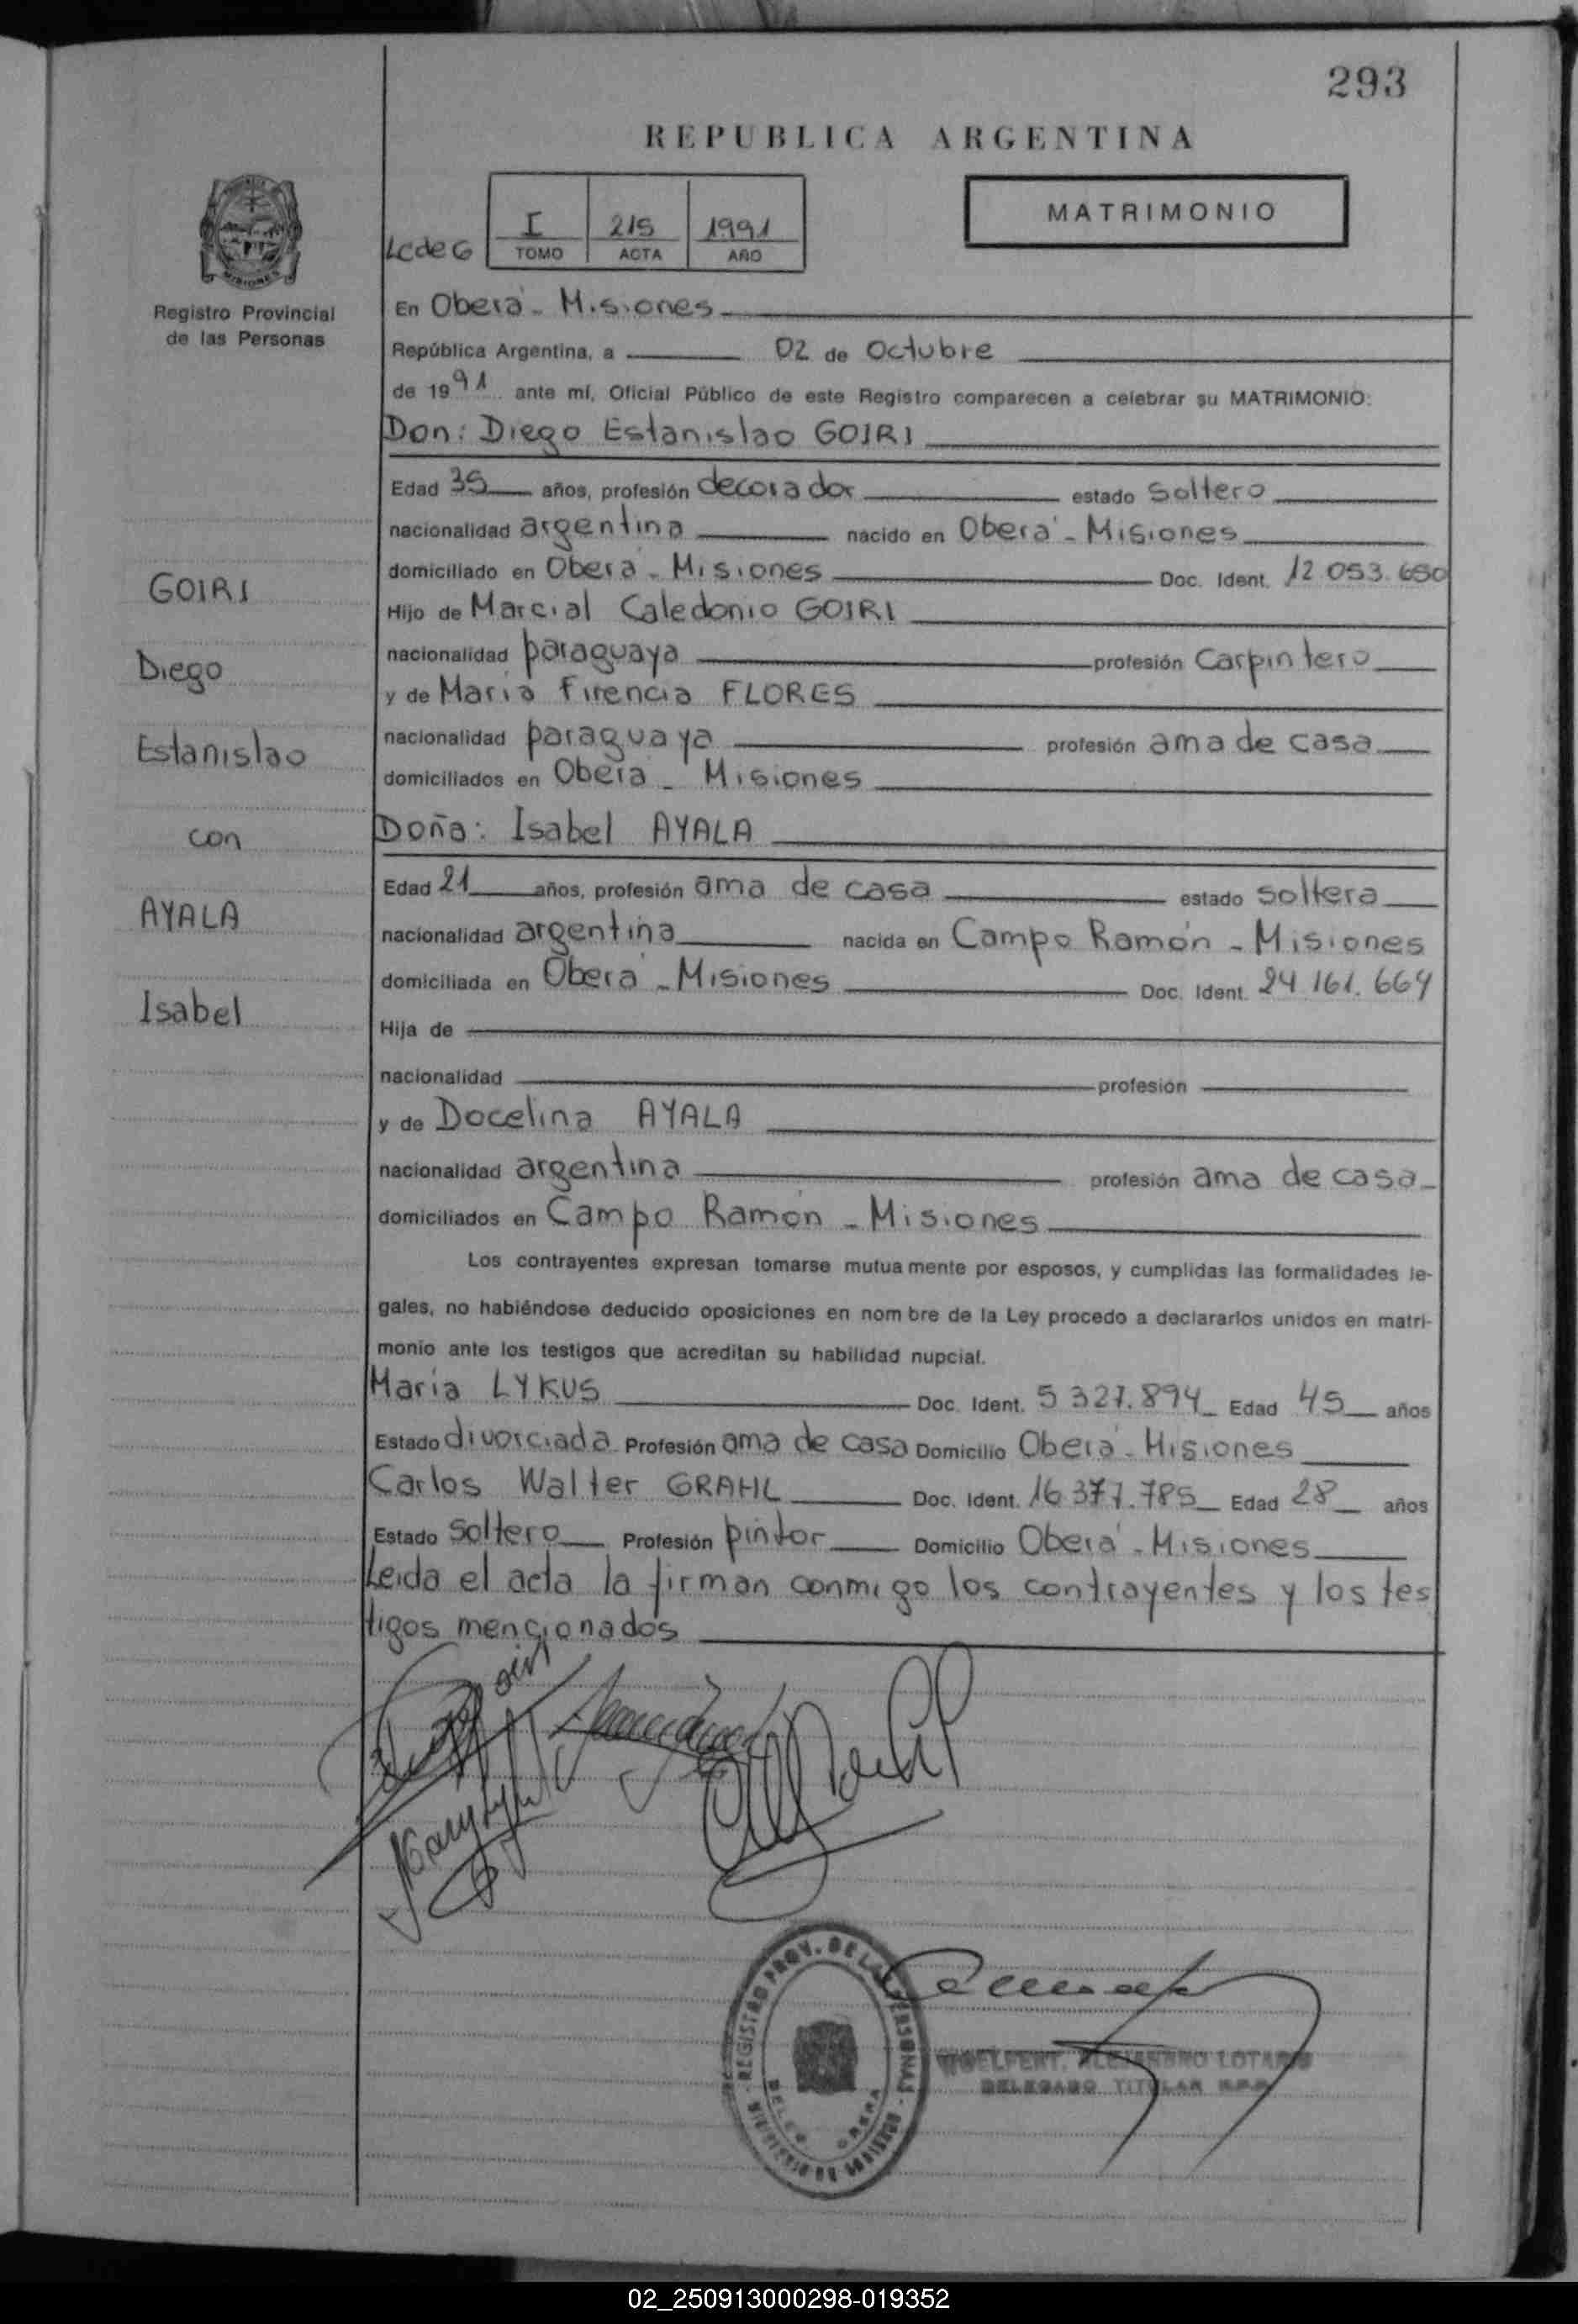 293
REPUBLICA ARGENTINA
I 215 1991
MATRIMONIO
LcdeG TOMO ACTA AÑO
MISIONES
Registro Provincial
de las Personas
En Oberá - Misiones
República Argentina, a 02 de Octubre
de 1991 ante mí, Oficial Público de este Registro comparecen a celebrar su MATRIMONIO:
Don: Diego Estanislao GOIRI
Edad 35 años, profesión decorador estado Soltero
nacionalidad argentina nacido en Oberá - Misiones
domiciliado en Oberá - Misiones Doc. Ident. 12.053.650
GOIRI
Hijo de Marcial Caledonio GOIRI
nacionalidad paraguaya profesión Carpintero
Diego
y de María Firencia FLORES
nacionalidad paraguaya profesión ama de casa
Estanislao
domiciliados en Oberá - Misiones
Doña: Isabel AYALA
con
Edad 21 años, profesión ama de casa estado soltera
AYALA
nacionalidad argentina nacida en Campo Ramón - Misiones
domiciliada en Oberá - Misiones Doc. Ident. 24.161.664
Isabel
Hija de
nacionalidad profesión
y de Docelina AYALA
nacionalidad argentina profesión ama de casa
domiciliados en Campo Ramón - Misiones
Los contrayentes expresan tomarse mutuamente por esposos, y cumplidas las formalidades le-
gales, no habiéndose deducido oposiciones en nombre de la Ley procedo a declararlos unidos en matri-
monio ante los testigos que acreditan su habilidad nupcial.
María LYKUS Doc. Ident. 5.327.894 Edad 45 años
Estado divorciada Profesión ama de casa Domicilio Oberá - Misiones
Carlos Walter GRAHL Doc. Ident. 16.377.785 Edad 28 años
Estado soltero Profesión pintor Domicilio Oberá - Misiones
Leída el acta la firman conmigo los contrayentes y los tes
tigos mencionados
REGISTRO PROV. DE LAS PERSONAS
MINISTERIO DE GOBIERNO
ALEJANDRO LOTARIO
DELEGADO TITULAR R.P.P.
02_250913000298-019352